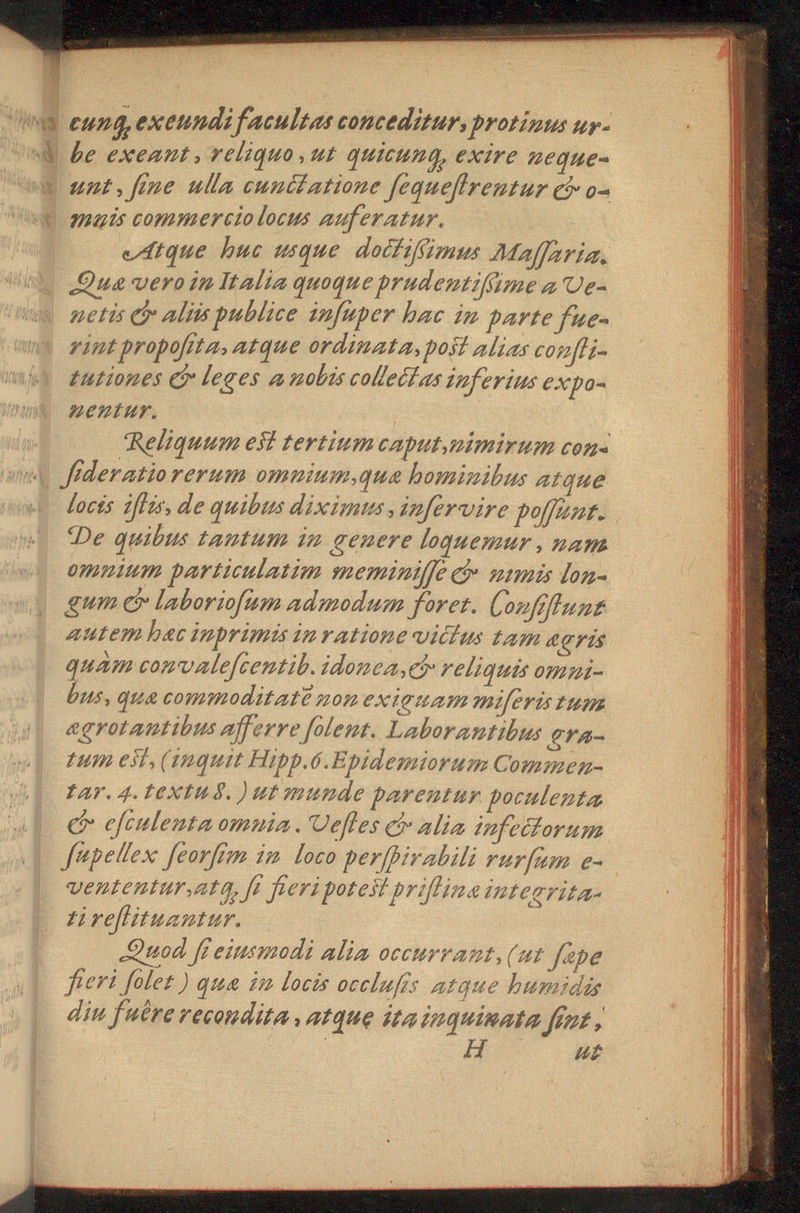 cunq, exeundi facultas conceditur, protinus ur-
be exeant, reliquo, ut quicunq, exire neque-
unt, sine ulla cunctatione sequestrentur & o-
mnis commercio locus auferatur.
Atque huc usque doctissimus Massaria.
Quæ vero in Italia quoque prudentissime a Ve-
netis & aliis publice insuper hac in parte fue-
rint proposita, atque ordinata, post alias consti-
tutiones & leges a nobis collectas inferius expo-
nentur.
Reliquum est tertium caput, nimirum con-
sideratio rerum omnium, quæ hominibus atque
locis istis, de quibus diximus, inservire possunt.
De quibus tantum in genere loquemur, nam
omnium particulatim meminisse & nimis lon-
gum & laboriosum admodum foret. Consistunt
autem hæc inprimis in ratione victus tam ægris
quàm convalescentib. idonea, & reliquis omni-
bus, quæ commoditatē non exiguam miseris tum
ægrotantibus afferre solent. Laborantibus gra-
tum est, (inquit Hipp. 6. Epidemiorum Commen-
tar. 4. textu 8.) ut munde parentur poculenta
& esculenta omnia. Vestes & alia infectorum
supellex seorsim in loco perspirabili rursum e-
vententur, atq, si fieri potest pristinæ integrita-
ti restituantur.
Quod si eiusmodi alia occurrant, (ut sæpe
fieri solet) quæ in locis occlusis atque humidis
diu fuêre recondita, atque ita inquinata sint,
H ut